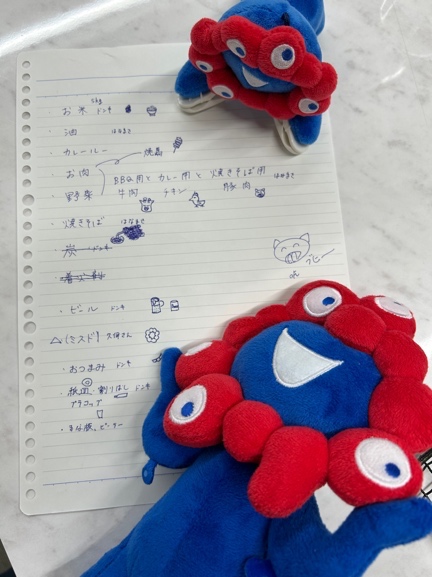 5kg
・お米 ドンキ
・油 はなまさ
・カレールー 焼鳥
・お肉 BBQ用とカレー用と焼きそば用 はなまさ
・野菜 牛肉 チキン 豚肉
・焼きそば はなまさ
・炭 ドンキ
ブヒー
・ビール ドンキ
△(ミスド) 久保さん
・おつまみ ドンキ
・紙皿・割りばし ドンキ
プラコップ
・まな板、ピーラー